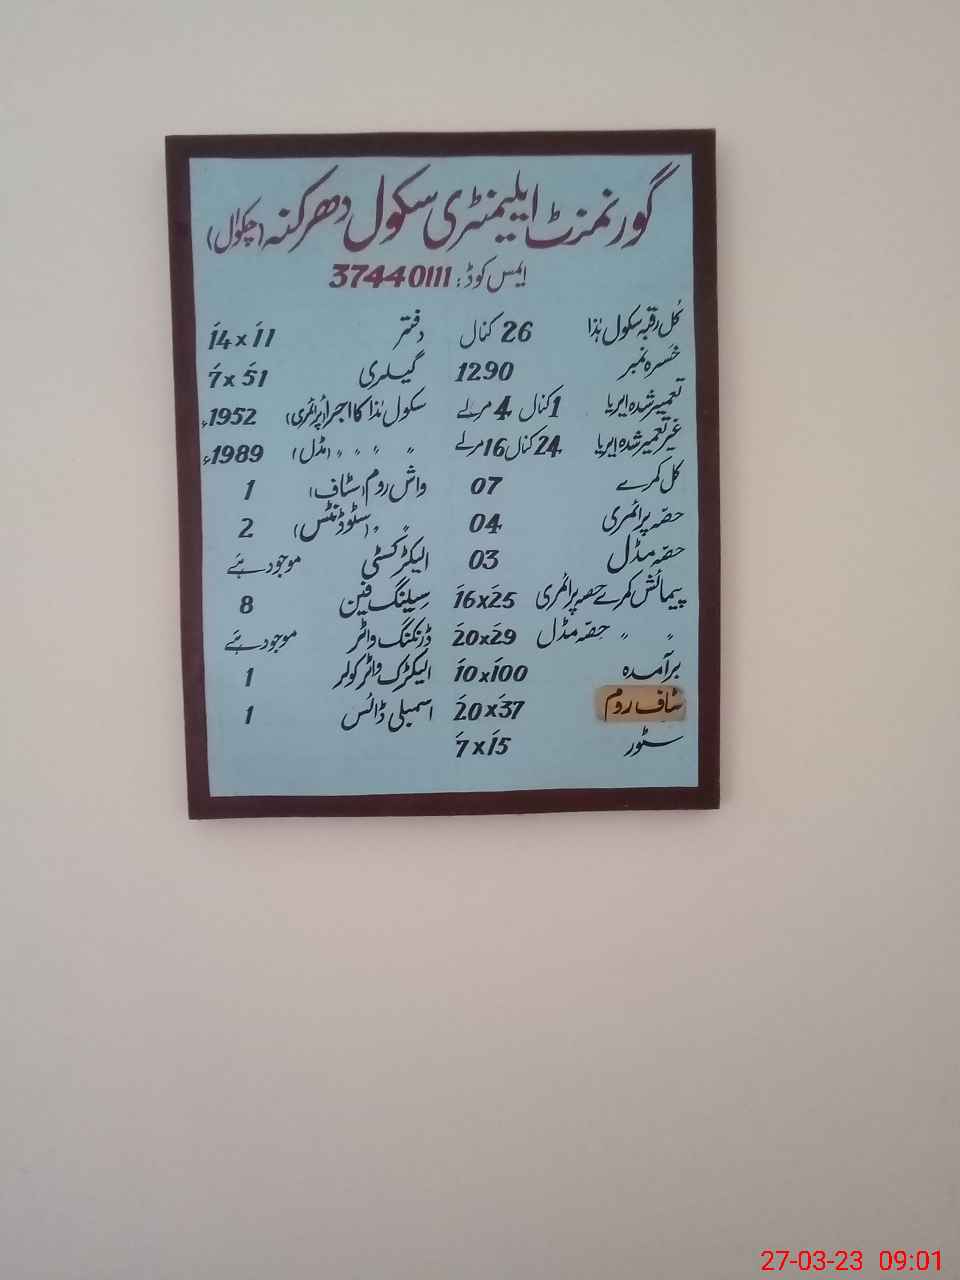 گورنمنٹ ایلیمنٹری سکول دھرکنہ (چکوال)
ایمس کوڈ: 37440111
کُل رقبہ سکول ہٰذا 26 کنال دفتر 14́ x 11́
خسرہ نمبر 1290 گیلری 7́ x 51́
تعمیر شدہ ایریا 1 کنال 4 مرلے سکول ہٰذا کا اجرا (پرائمری) 1952ء
غیر تعمیر شدہ ایریا 24 کنال 16 مرلے " " " " (مڈل) 1989ء
کل کمرے 07 واش روم (سٹاف) 1
حصّہ پرائمری 04 " " (سٹوڈنٹس) 2
حصّہ مڈل 03 الیکٹرکسٹی موجود ہے
پیمائش کمرے حصہ پرائمری 16́x25́ سیلنگ فین 8
" " حصّہ مڈل 20́x29́ ڈرنکنگ واٹر موجود ہے
برآمدہ 10́x100́ الیکٹرک واٹر کولر 1
سٹاف روم 20́x37́ اسمبلی ڈائس 1
سٹور 7́x15́
27-03-23 09:01